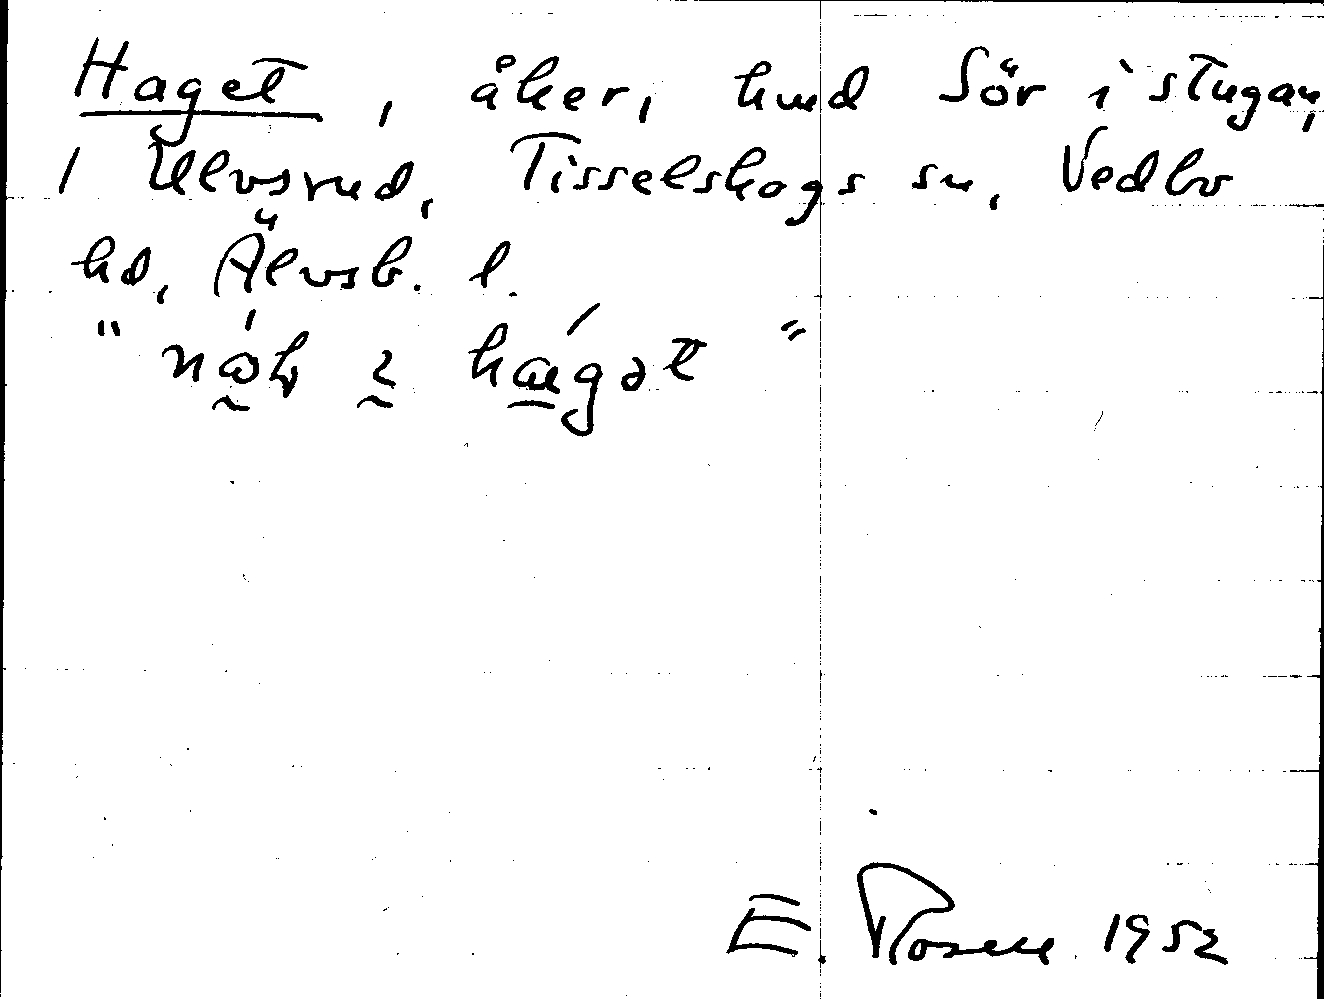 Haget, åker, hmd Sör i stugan,
1 Ulvsrud, Tisselskogs sn, Vedbo
hd, Älvsb. l.
E. Rosell 1952